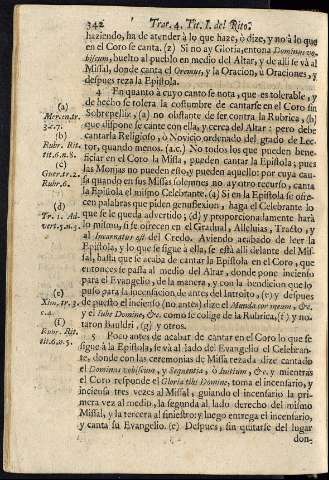 342 Trat. 4. Tit. I. del Rito.
haziendo, ha de atender à lo que haze, ò dize, y no à lo que
en el Coro se canta. (z) Si no ay Gloria, entona Dominus vo-
biscum, buelto al pueblo en medio del Altar, y de alli se và al
Missal, donde canta el Oremus, y la Oracion, ù Oraciones, y
despues reza la Epistola.
4 En quanto à cuyo canto se nota, que es tolerable, y
de hecho se tolera la costumbre de cantarse en el Coro sin
Sobrepelliz, (a) no obstante de ser contra la Rubrica, (b)
que dispone se cante con ella, y cerca del Altar: pero debe
cantarla Religioso, ò Novicio ordenado del grado de Lec-
tor, quando menos. (a.c.) No todos los que pueden bene-
ficiar en el Coro la Missa, pueden cantar la Epistola, pues
las Monjas no pueden esso, y pueden aquello: por cuya cau-
sa quando en sus Missas solemnes no ay otro recurso, canta
la Epistola el mismo Celebrante. (a) Si en la Epistola se ofre-
cen palabras que piden genuflexion, haga el Celebrante lo
que se le queda advertido; (d) y proporcionalmente harà
lo mismo, si se ofrecen en el Gradual, Alleluias, Tracto, y
al Incarnatus est del Credo. Aviendo acabado de leer la
Epistola, y lo que se sigue à ella, se està alli delante del Mis-
sal, hasta que se acaba de cantar la Epistola en el Coro, que
entonces se passa al medio del Altar, donde pone incienso
para el Evangelio, de la manera, y con la bendicion que lo
puso para la incensacion, de antes del Introito, (e) y despues
de puesto el incienso (no antes) dize el Munda cor meum, &c.
y el Iube Domine, &c. como se colige de la Rubrica, (f) y no-
taron Bauldri, (g) y otros.
5 Poco antes de acabar de cantar en el Coro lo que se
sigue à la Epistola, se và al lado del Evangelio el Celebran-
te, donde con las ceremonias de Missa rezada dize cantado
el Dominus vobiscum, y Sequentia, ò Initium, &c. y mientras
el Coro responde el Gloria tibi Domine, toma el incensario, y
inciensa tres vezes al Missal; guiando el incensario la pri-
mera vez al medio, la segunda al lado derecho del mismo
Missal, y la tercera al siniestro; y luego entrega el incensario,
y canta su Evangelio. (e) Despues, sin quitarse del lugar
don-
(a)
(b)
Rubr. Rit.
tit. 6. n. 8.
(c)
Rubr. 6.
(d)
Tr. 1. Ad-
(e)
(f)
Rubr. Rit.